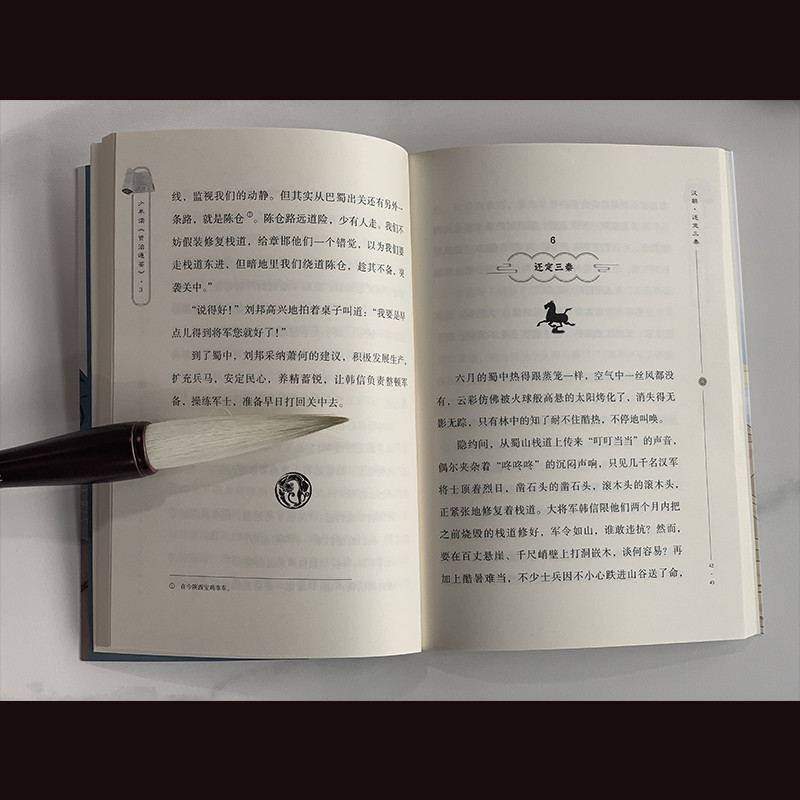 少年读《资治通鉴》·3
线，监视我们的动静。但其实从巴蜀出关还有另外一
条路，就是陈仓①。陈仓路远道险，少有人走。我们不
妨假装修复栈道，给章邯他们一个错觉，以为我们要
走栈道东进，但暗地里我们绕道陈仓，趁其不备，突
袭关中。”
“说得好！”刘邦高兴地拍着桌子叫道：“我要是早
点儿得到将军您就好了！”
到了蜀中，刘邦采纳萧何的建议，积极发展生产，
扩充兵马，安定民心，养精蓄锐，让韩信负责整顿军
备，操练军士，准备早日打回关中去。
① 在今陕西宝鸡市东。
汉朝·还定三秦
6
还定三秦
六月的蜀中热得跟蒸笼一样，空气中一丝风都没
有，云彩仿佛被火球般高悬的太阳烤化了，消失得无
影无踪，只有林中的知了耐不住酷热，不停地叫唤。
隐约间，从蜀山栈道上传来“叮叮当当”的声音，
偶尔夹杂着“咚咚咚”的沉闷声响，只见几千名汉军
将士顶着烈日，凿石头的凿石头，滚木头的滚木头，
正紧张地修复着栈道。大将军韩信限他们两个月内把
之前烧毁的栈道修好，军令如山，谁敢违抗？然而，
要在百丈悬崖、千尺峭壁上打洞嵌木，谈何容易？再
加上酷暑难当，不少士兵因不小心跌进山谷送了命，
42
43